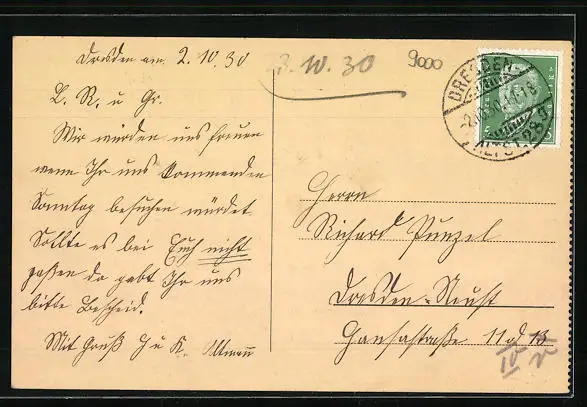 Dresden am 2.10.30
3.10.30
9000
L. R. u Gr.
Wir würden uns freuen
wenn Ihr uns kommenden
Sonntag besuchen würdet
Sollte es bei Euch nicht
passen da gebt Ihr uns
bitte Bescheid.
Mit Gruß J u K. Altmann
DRESDEN
ALTST. 28
Herrn
Richard Punzel
Dresden-Neust
Hansastraße 11 d 13
IV